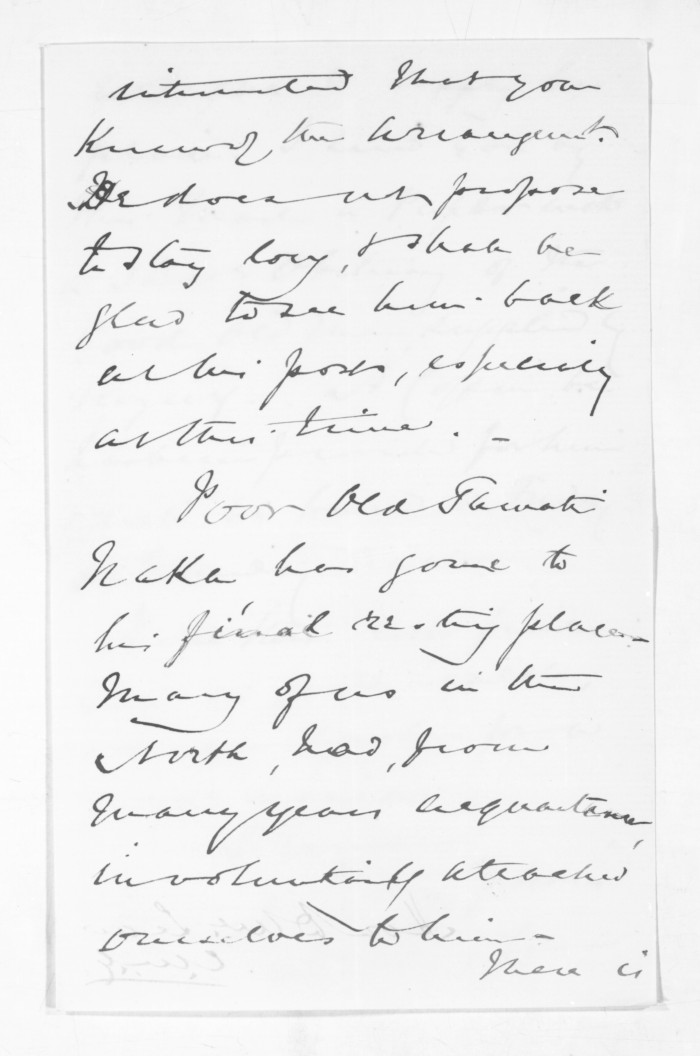 intimated that you
Knew of the arrangemt.
He does not propose
to stay long, & shall be
glad to see him back
at his post, especially
at this time. -
Poor Old Tamati
Waka has gone to
his final resting place -
Many of us in the
North, had, from
many years acquaintance,
involuntarily attached
ourselves to him -
There is